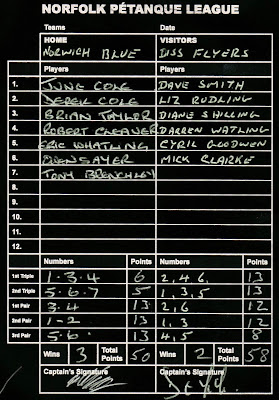 NORFOLK PÉTANQUE LEAGUE
Teams Date
HOME VISITORS
NORWICH BLUE DISS FLYERS
Players Players
1. JUNE COLE DAVE SMITH
2. DEREK COLE LIZ RUDLING
3. BRIAN TAYLOR DIANE SHILLING
4. ROBERT CLEAVER DARREN WATLING
5. ERIC WHATLING CYRIL GOODWEN
6. OWEN SAYER MICK CLARKE
7. TONY BRENCHLEY
8.
9.
10.
11.
12.
Numbers Points Numbers Points
1st Triple 1.3.4 6 2,4,6, 13
2nd Triple 5.6.7 5 1,3,5 13
1st Pair 3.4 13 2,6 12
2nd Pair 1-2 13 1,3 12
3rd Pair 5.6. 13 4,5 8
Wins 3 Total Points 50 Wins 2 Total Points 58
Captain's Signature Captain's Signature